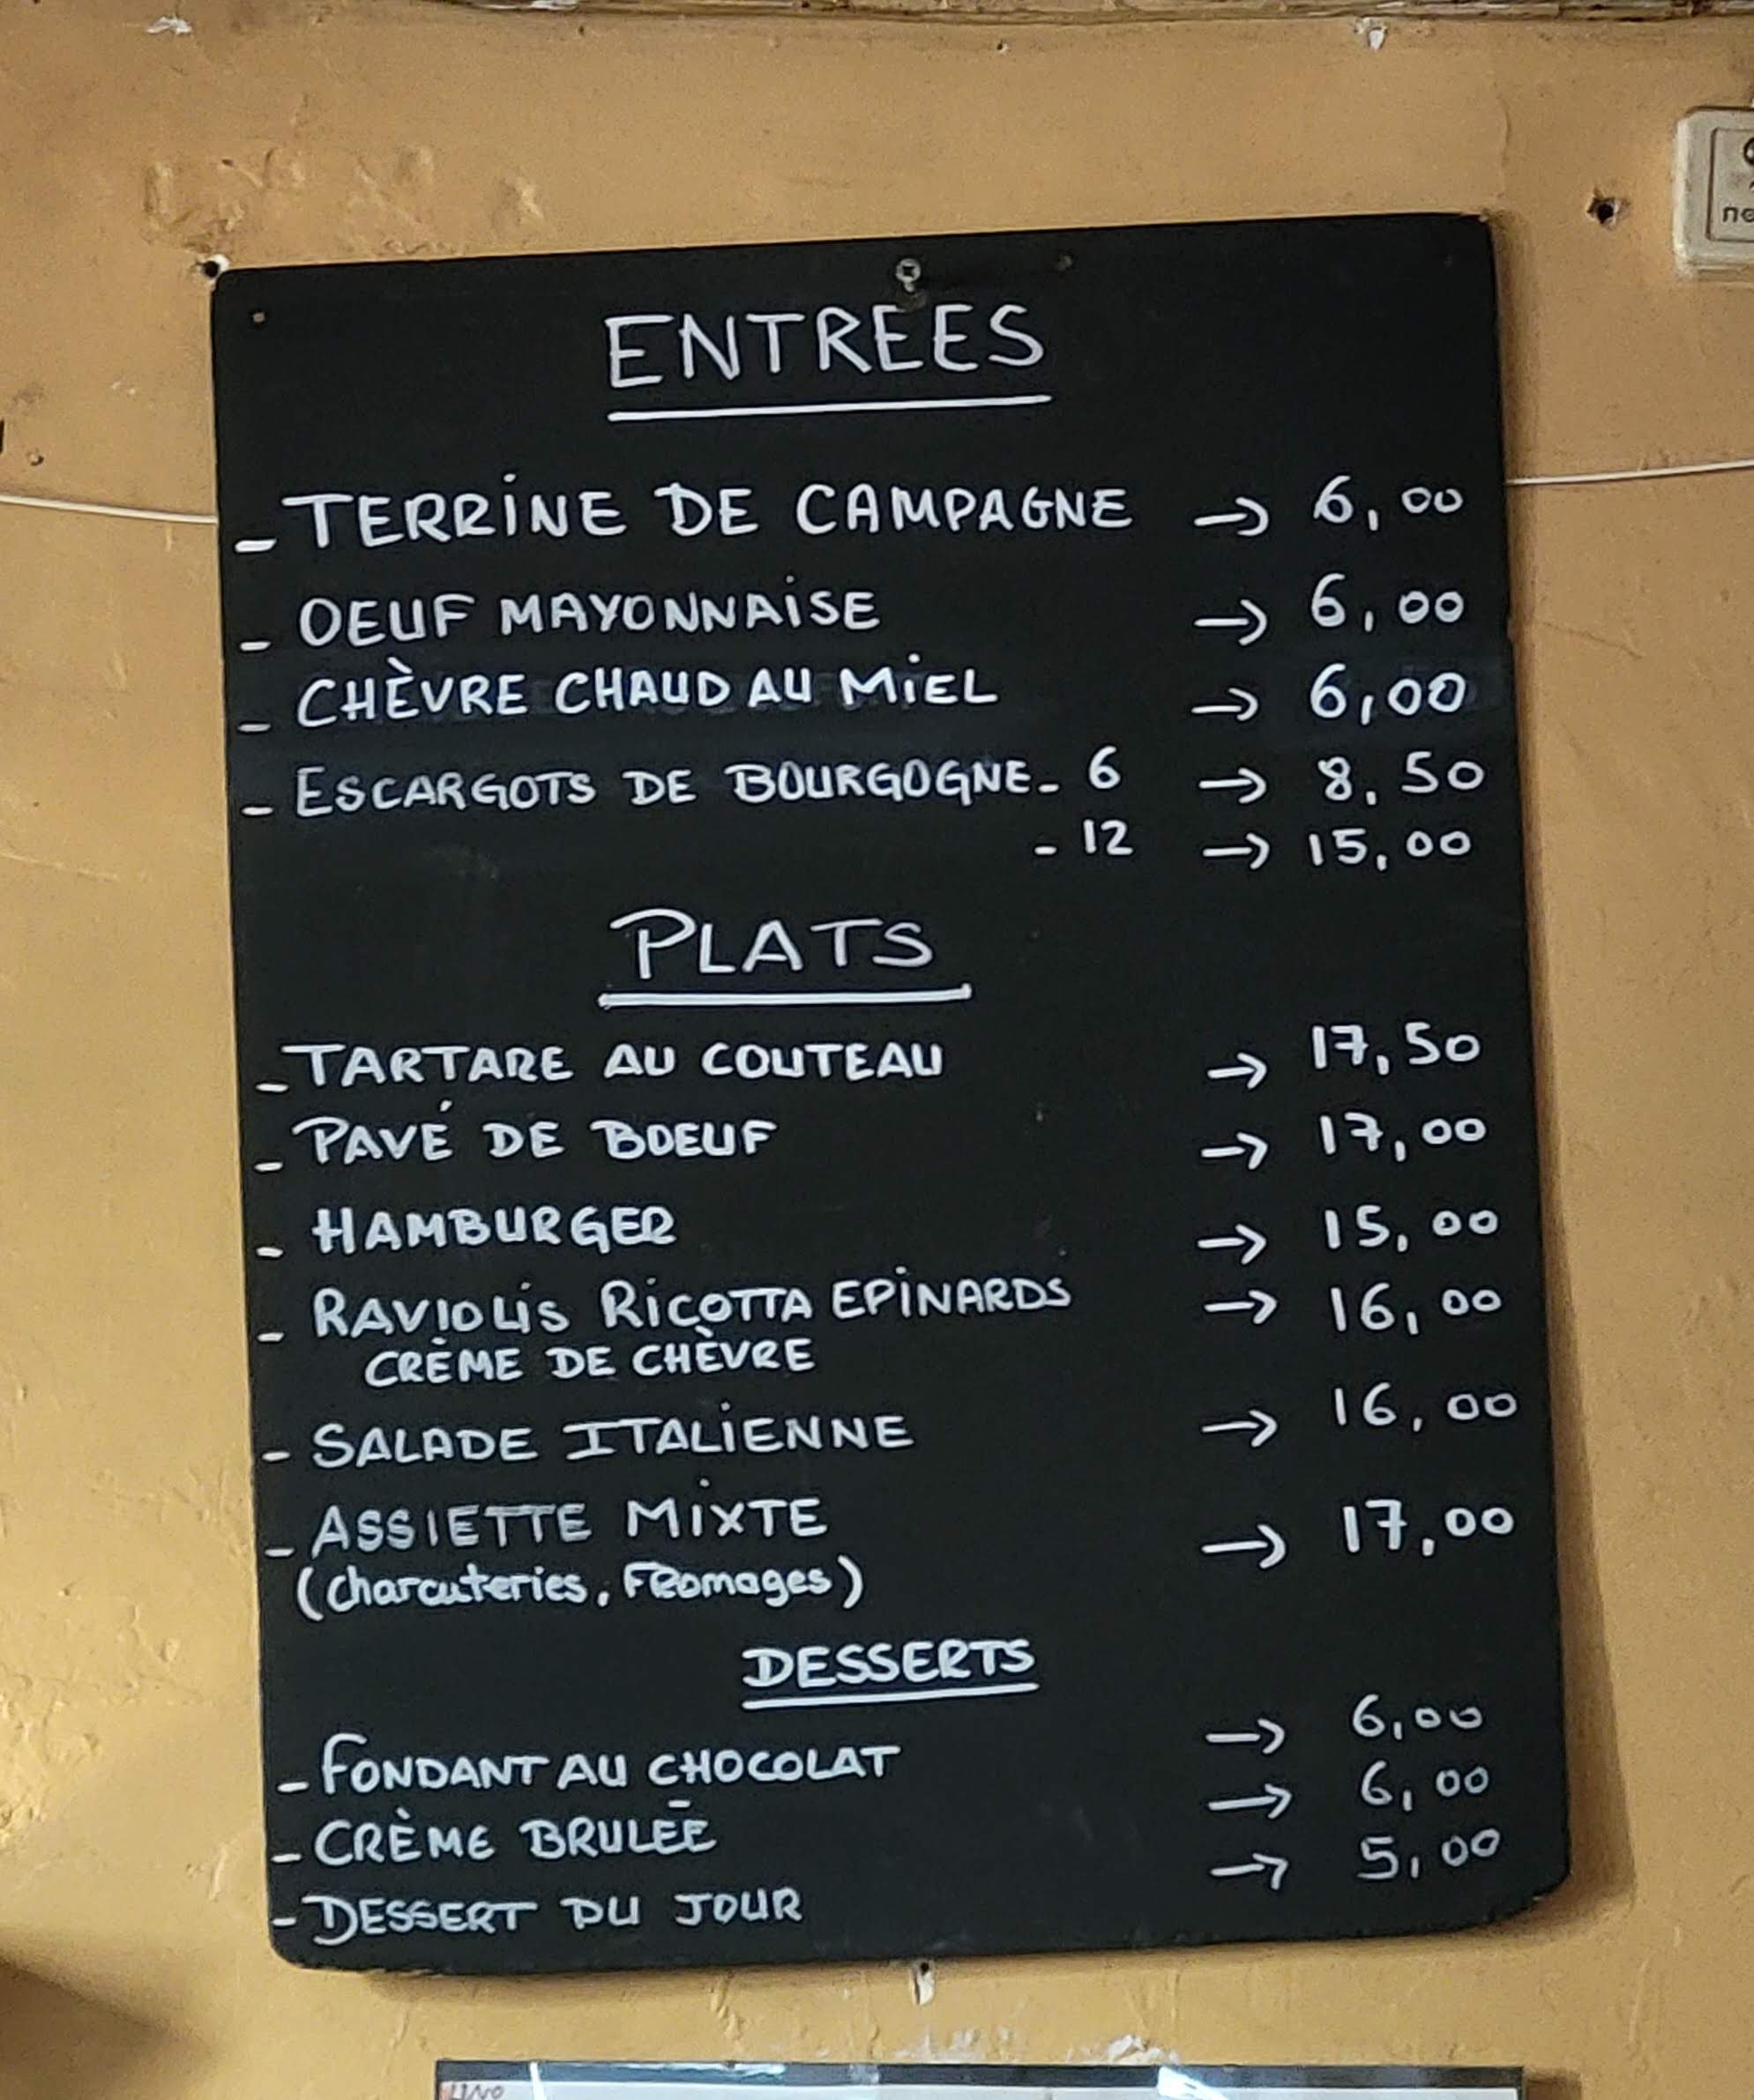 ENTREES
- TERRINE DE CAMPAGNE → 6,00
- OEUF MAYONNAISE → 6,00
- CHÈVRE CHAUD AU MIEL → 6,00
- ESCARGOTS DE BOURGOGNE - 6 → 8.50
- 12 → 15,00
PLATS
- TARTARE AU COUTEAU → 17,50
- PAVÉ DE BOEUF → 17,00
- HAMBURGER → 15,00
- RAVIOLIS RICOTTA EPINARDS → 16,00
CRÈME DE CHÈVRE
- SALADE ITALIENNE → 16,00
- ASSIETTE MIXTE → 17,00
(charcuteries, Fromages)
DESSERTS
- FONDANT AU CHOCOLAT → 6,00
- CRÈME BRULÉE → 6,00
- DESSERT DU JOUR → 5,00